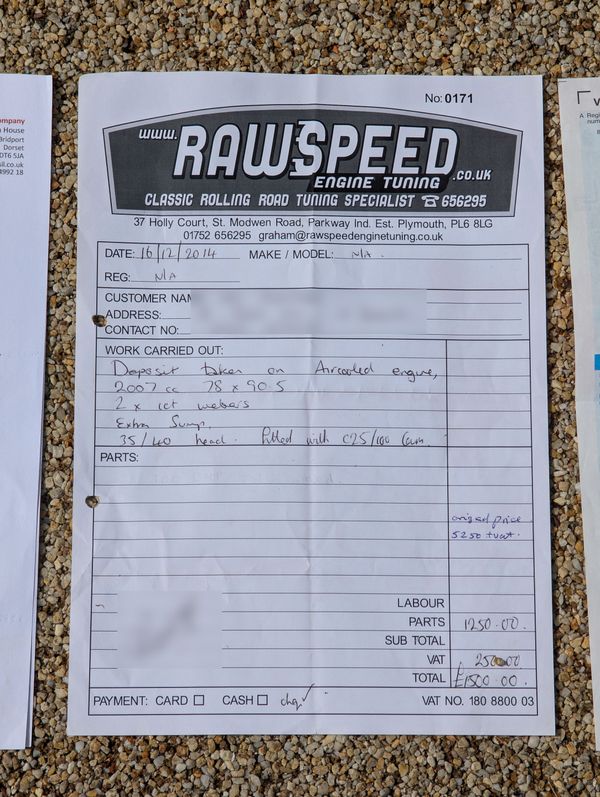 ompany
n House
Bridport
Dorset
DT6 5JA
sil.co.uk
4992 18
No: 0171
www.RAWSPEED.co.uk
ENGINE TUNING
CLASSIC ROLLING ROAD TUNING SPECIALIST ☎ 656295
37 Holly Court, St. Modwen Road, Parkway Ind. Est. Plymouth, PL6 8LG
01752 656295 graham@rawspeedenginetuning.co.uk
DATE: 16/12/2014 MAKE / MODEL: N/A.
REG: N/A
CUSTOMER NAM
ADDRESS:
CONTACT NO:
WORK CARRIED OUT:
Deposit taken on Aircooled engine,
2007cc 78 x 90.5
2 x ict webers
Extra Sump.
35/40 head. fitted with C25/100 Cam.
PARTS:
original price
5250 + vat.
LABOUR
PARTS 1250.00.
SUB TOTAL
VAT 250.00
TOTAL £1500.00.
PAYMENT: CARD ☐ CASH ☐ chq ✓ VAT NO. 180 8800 03
V
A Regis
num